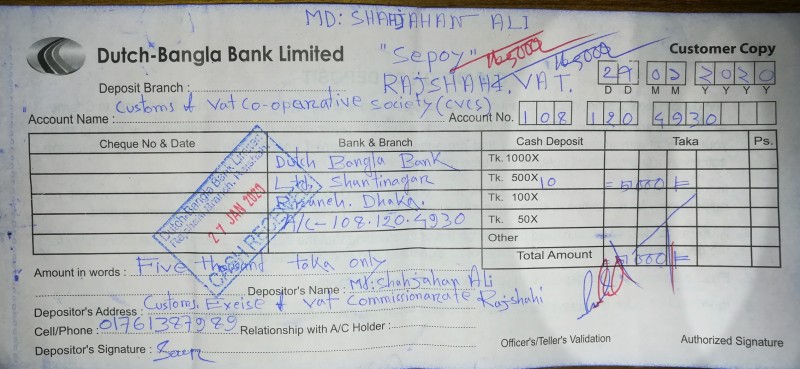 MD: SHAHJAHAN ALI
Dutch-Bangla Bank Limited
"Sepoy" Tk 5000 Tk 5000
Customer Copy
Deposit Branch : RAJSHAHI. VAT.
D D M M Y Y Y Y
Account Name : Customs & Vat Co-operative society (CVCS)
Account No. 108 120 4930
Cheque No & Date Bank & Branch Cash Deposit Taka Ps.
Dutch Bangla Bank Tk. 1000X
Ltd; Shantinagar Tk. 500X 10 = 5000/=
Branch. Dhaka. Tk. 100X
A/C- 108.120.4930 Tk. 50X
Other
Total Amount 5000/=
Dutch-Bangla Bank Limited
Rajshahi Branch, Rajshahi
27 JAN 2020
Amount in words : Five thousand taka only
Depositor's Name : Md: Shahjahan Ali
Depositor's Address : Customs. Exeise & vat Commissionarate Rajshahi
Cell/Phone : 01761387989 Relationship with A/C Holder :
Depositor's Signature :
Officer's/Teller's Validation Authorized Signature